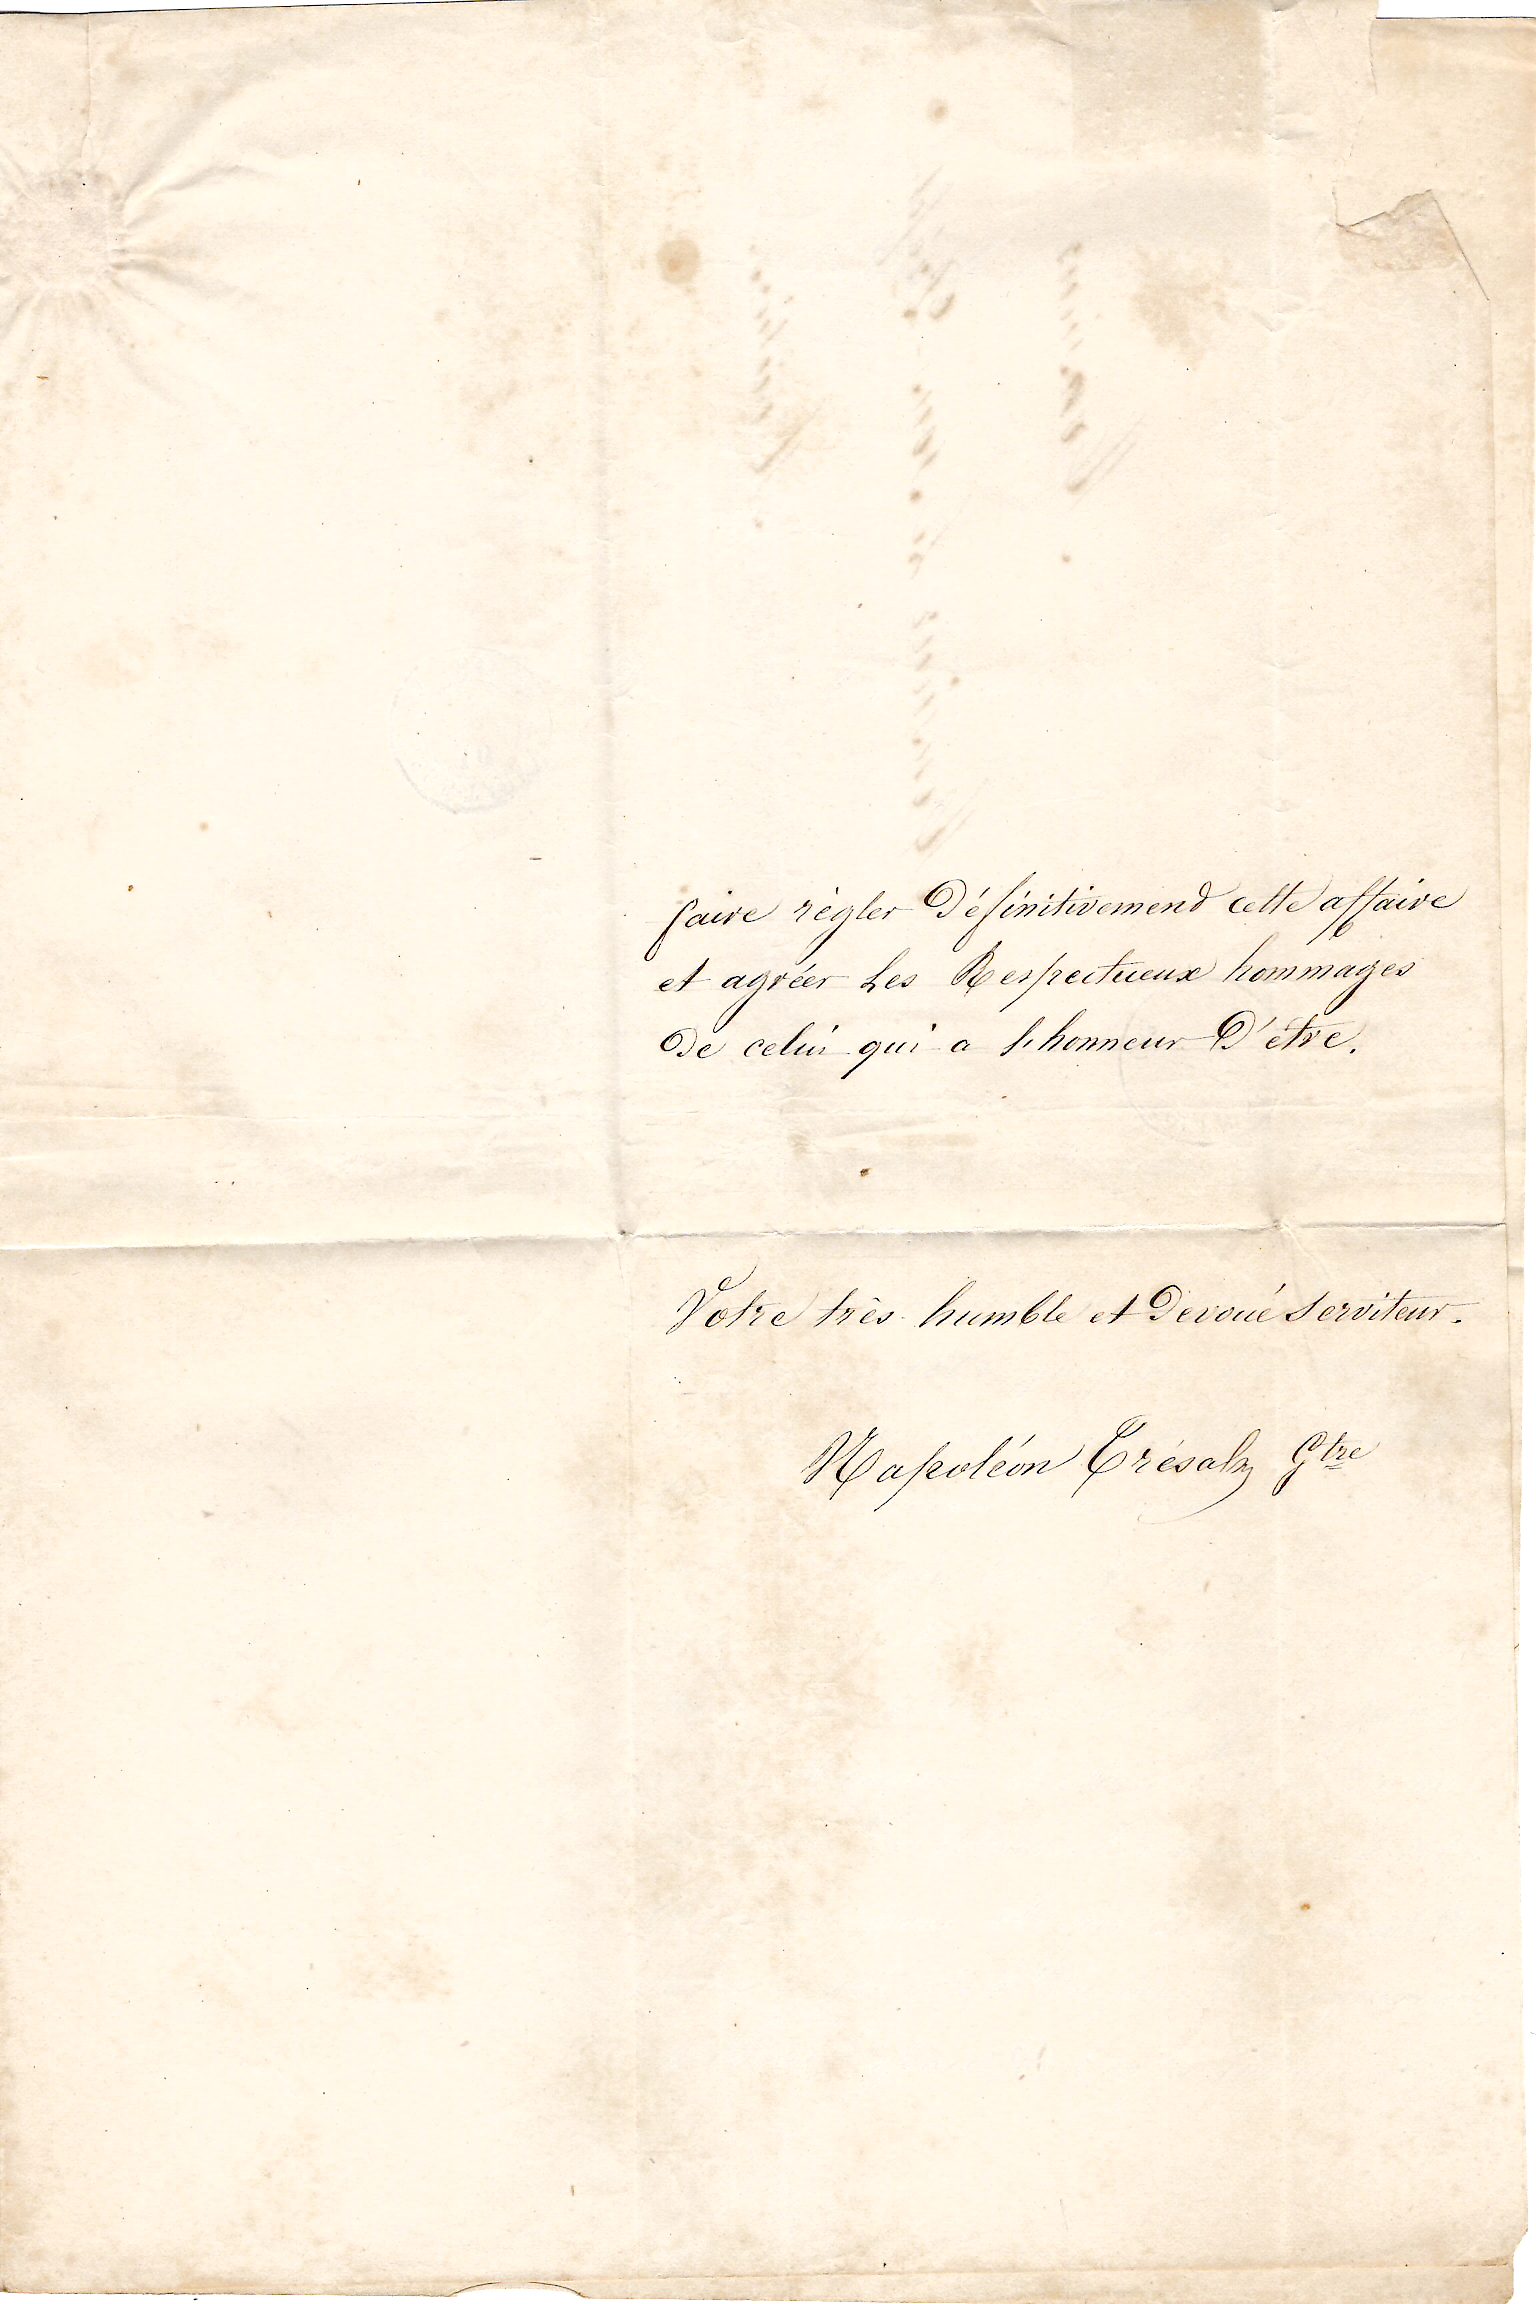 faire règler Définitivemend cette affaire
et agréer Les Respectueux hommages
De celui qui a L'honneur D'être.
Votre très humble et Devoué serviteur.
Napoléon Gtre